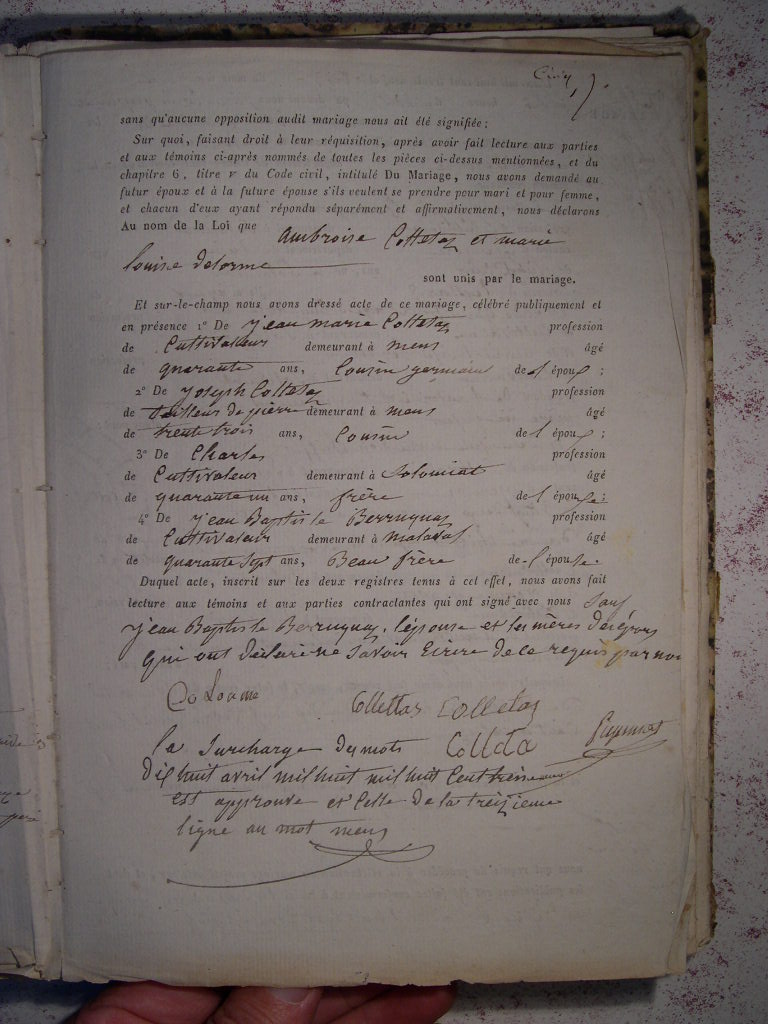 sans qu'aucune opposition audit mariage nous ait été signifiée;
Sur quoi, faisant droit à leur réquisition, après avoir fait lecture aux parties
et aux témoins ci-après nommés de toutes les pièces ci-dessus mentionnées, et du
chapitre 6, titre v du Code civil, intitulé Du Mariage, nous avons demandé au
futur époux et à la future épouse s'ils veulent se prendre pour mari et pour femme,
et chacun d'eux ayant répondu séparément et affirmativement, nous déclarons
Au nom de la Loi que ambroise Colletaz et marie
louise delorme
sont unis par le mariage.
Et sur-le-champ nous avons dressé acte de ce mariage, célébré publiquement et
en présence 1° De jean marie Colletaz profession
de Cultivateur demeurant à mens âgé
de quarante ans, Cousin germain de l'époux;
2° De Joseph Colletaz profession
de tailleur de pierre demeurant à mens âgé
de trente trois ans, Cousin de l'époux;
3° De Charles profession
de Cultivateur demeurant à Solomiat âgé
de quarante un ans, frère de l'épouse;
4° De jean Baptiste Berruyaz profession
de Cultivateur demeurant à âgé
de quarante Sept ans, Beau frère de l'épouse.
Duquel acte, inscrit sur les deux registres tenus à cet effet, nous avons fait
lecture aux témoins et aux parties contractantes qui ont signé avec nous Sauf
jean Baptiste Berruyaz, l'épouse et les mères des époux
qui ont déclaré ne Savoir Ecrire de ce requis par nou
Collettaz Colletaz
la Surcharge du mots
Dix huit avril mil huit mil huit Cent
est approuvé et Celle de la treizieme
ligne au mot mens